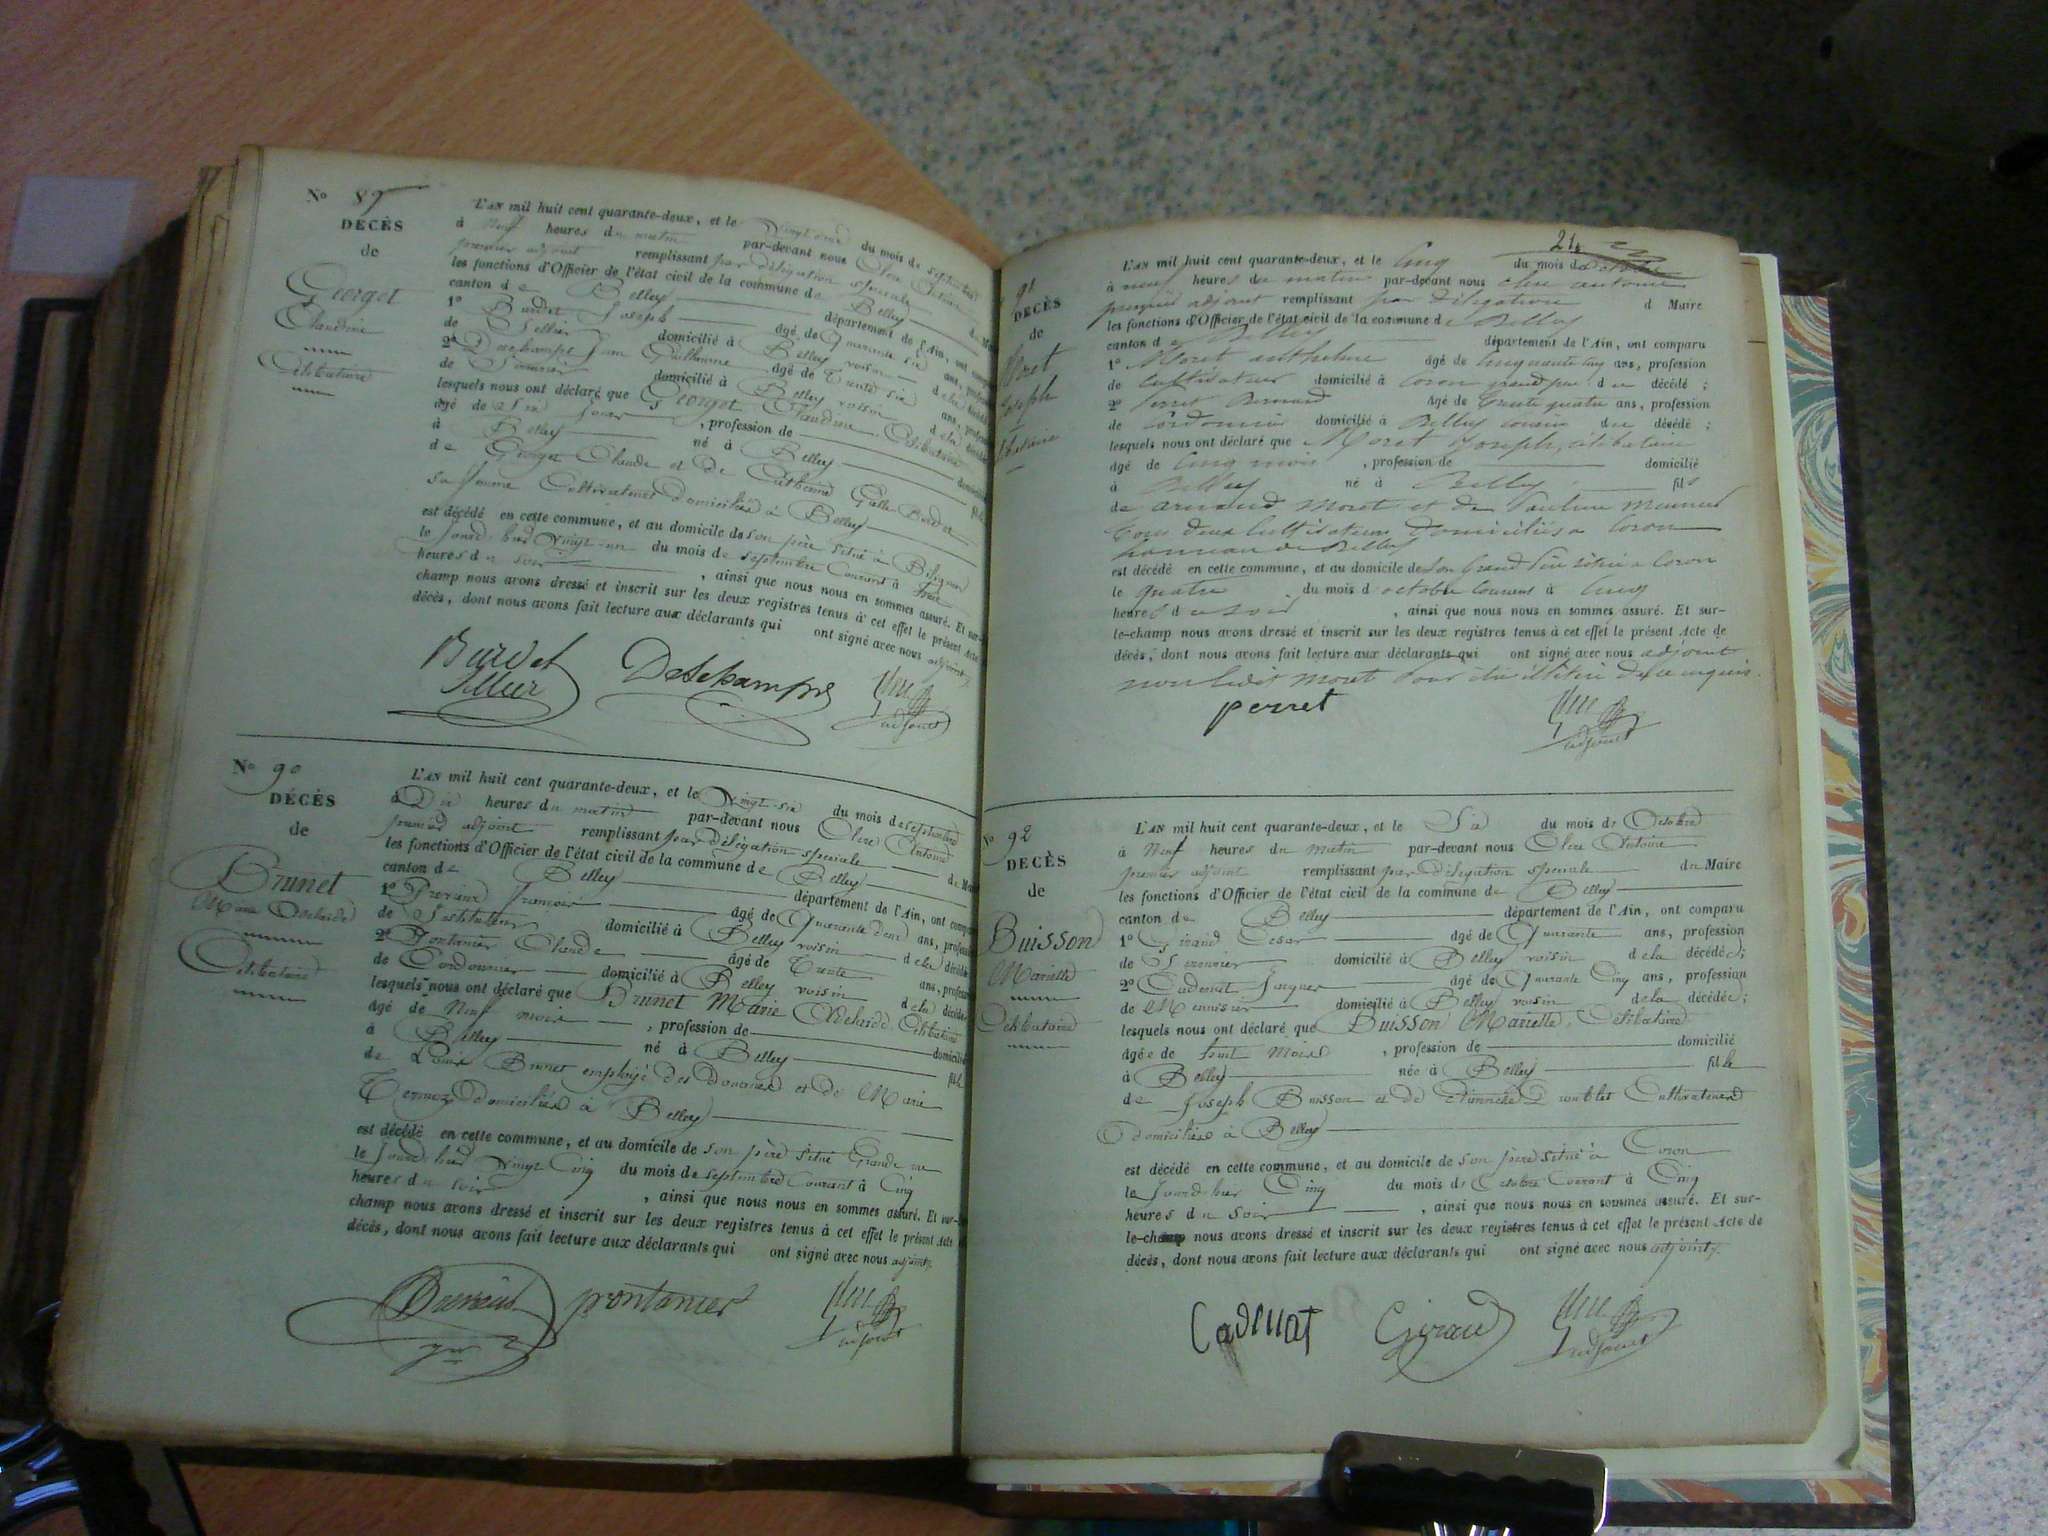 N° 89
DÉCÈS
de
Georget
Claudine
Célibataire
L'AN mil huit cent quarante-deux, et le Vingt deux du mois de Septembre
à Neuf heures du matin par-devant nous Clerc Antoine
premier adjoint remplissant par délégation speciale du Maire
les fonctions d'Officier de l'état civil de la commune de Belley
canton de Belley département de l'Ain, ont comparu
1° Burdet Joseph âgé de Quarante six ans, profession
de Sellier domicilié à Belley voisin de la décédée
2° Deschamps Jean Guillaume âgé de Trente six ans, profession
de domicilié à Belley voisin de la décédée
lesquels nous ont déclaré que Georget Claudine, Célibataire
âgé de un jour, profession de domicilié
à Belley né à Belley fille
de Georget Claude et de Catherine
sa femme Cultivateurs domiciliés à Belley
est décédé en cette commune, et au domicile de son père situé à
le jour d'hier Vingt-un du mois de Septembre Courant à
heures du soir, ainsi que nous nous en sommes assuré. Et sur-le-
champ nous avons dressé et inscrit sur les deux registres tenus à cet effet le présent Acte de
décès, dont nous avons fait lecture aux déclarants qui ont signé avec nous adjoint.
Burdet Deschamps
Sellier adjoint
N° 90
DÉCÈS
de
Brunet
Marie Adelaide
Célibataire
L'AN mil huit cent quarante-deux, et le Vingt-six du mois de Septembre
à Dix heures du matin par-devant nous Clerc Antoine
premier adjoint remplissant par délégation speciale du Maire
les fonctions d'Officier de l'état civil de la commune de Belley
canton de Belley département de l'Ain, ont comparu
1° François âgé de Quarante deux ans, profession
de Instituteur domicilié à Belley voisin de la décédée
2° Pontanier Claude âgé de Trente ans, profession
de Cordonnier domicilié à Belley voisin de la décédée
lesquels nous ont déclaré que Brunet Marie Adelaide, Célibataire
âgé de Neuf mois, profession de domicilié
à Belley né à Belley fille
de Louis Brunet employé des douanes et de Marie
domiciliés à Belley
est décédé en cette commune, et au domicile de son père situé Grande rue
le jour d'hier Vingt Cinq du mois de Septembre Courant à Cinq
heures du soir, ainsi que nous nous en sommes assuré. Et sur-le-
champ nous avons dressé et inscrit sur les deux registres tenus à cet effet le présent Acte de
décès, dont nous avons fait lecture aux déclarants qui ont signé avec nous adjoint.
pontanier
adjoint
21
91
DÉCÈS
de
Moret
Joseph
Célibataire
L'AN mil huit cent quarante-deux, et le Cinq du mois d'Octobre
à neuf heures du matin par-devant nous clerc antoine
premier adjoint remplissant par délégation d Maire
les fonctions d'Officier de l'état civil de la commune de Belley
canton de Belley département de l'Ain, ont comparu
1° Moret anthelme âgé de Cinquante cinq ans, profession
de Cultivateur domicilié à Coron grand père du décédé ;
2° perret Bernard âgé de trente quatre ans, profession
de Cordonnier domicilié à Belley cousin du décédé ;
lesquels nous ont déclaré que Moret Joseph, célibataire
âgé de Cinq mois, profession de domicilié
à Belley né à Belley fils
de armand Moret et de Pauline
tous deux Cultivateurs Domiciliés à Coron
hameau de Belley
est décédé en cette commune, et au domicile de son Grand Père situé à Coron
le quatre du mois d'octobre Courant à Cinq
heures du soir, ainsi que nous nous en sommes assuré. Et sur-
le-champ nous avons dressé et inscrit sur les deux registres tenus à cet effet le présent Acte de
décès, dont nous avons fait lecture aux déclarants qui ont signé avec nous adjoint
non ledit Moret pour être illitéré de ce enquis.
perret
adjoint
N° 92
DÉCÈS
de
Buisson
Mariette
Célibataire
L'AN mil huit cent quarante-deux, et le Six du mois d'Octobre
à Neuf heures du matin par-devant nous Clerc Antoine
premier adjoint remplissant par délégation speciale du Maire
les fonctions d'Officier de l'état civil de la commune de Belley
canton de Belley département de l'Ain, ont comparu
1° Giraud Cesar âgé de Quarante ans, profession
de Serrurier domicilié à Belley voisin de la décédée ;
2° Cadenat Jacques âgé de Quarante Cinq ans, profession
de Menuisier domicilié à Belley voisin de la décédée ;
lesquels nous ont déclaré que Buisson Mariette, Célibataire
âgée de huit Mois, profession de domicilié
à Belley née à Belley fille
de Joseph Buisson et de Cultivateurs
domiciliés à Belley
est décédé en cette commune, et au domicile de son père situé à Coron
le jour d'hier Cinq du mois d'Octobre Courant à Cinq
heures du soir, ainsi que nous nous en sommes assuré. Et sur-
le-champ nous avons dressé et inscrit sur les deux registres tenus à cet effet le présent Acte de
décès, dont nous avons fait lecture aux déclarants qui ont signé avec nous adjoint.
Cadenat Giraud
adjoint